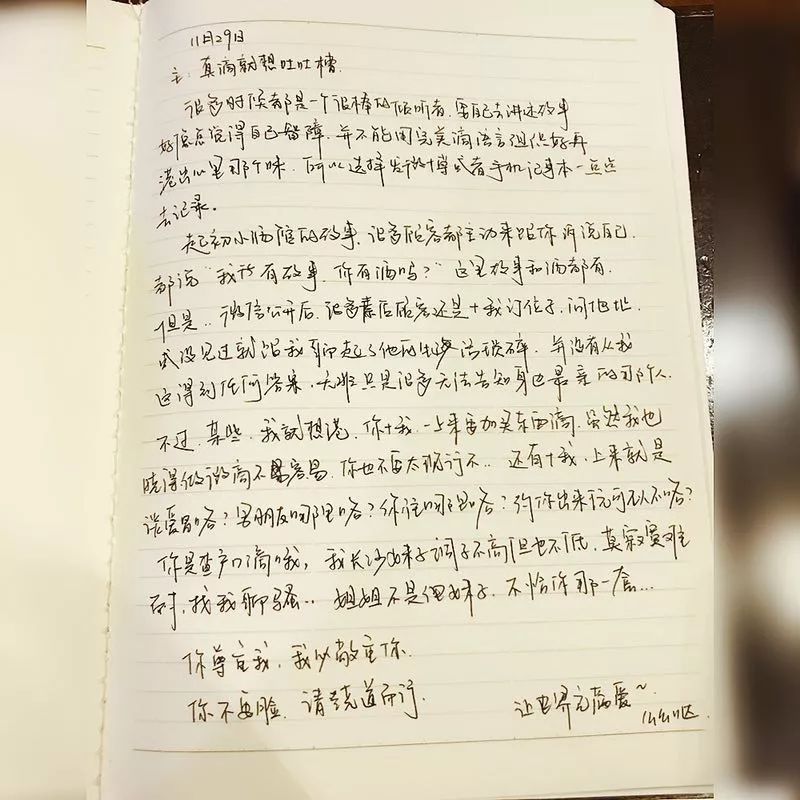 11月29日
主: 真滴就想吐吐槽.
很多时候都是一个很棒的倾听者, 要自己去讲述故事
好像总觉得自己智障, 并不能用完美滴语言组织好再
港出心里那个味. 所以选择发微博或者手机记事本一点点
去记录。
起初小肠陪的故事. 很多顾客都主动来跟你诉说自己.
都说"我有故事, 你有酒吗?" 这里故事和酒都有.
但是.. 微信公开后, 很多素后顾客还是+我订位子, 问地址.
或没见过就跟我聊起了他的生活琐碎. 并没有从我
这得到任何答案, 无非只是很多无法告知身边最亲的那个人.
不过, 某些, 我就想港, 你+我, 一上来要加买东西滴, 虽然我也
晓得做微商不容易, 你也不要太现行不.. 还有+我, 上来就是
谈爱冒咯? 男朋友哪里咯? 你住哪里咯? 约你出来玩可以不咯?
你是查户口滴哦, 我长沙妹子调子不高但也不低. 莫寂寞难
耐, 找我聊骚.. 姐姐不是俚妹子. 不恰你那一套...
你尊重我, 我以敬重你.
你不要脸, 请绕道而行.
让世界充满爱~